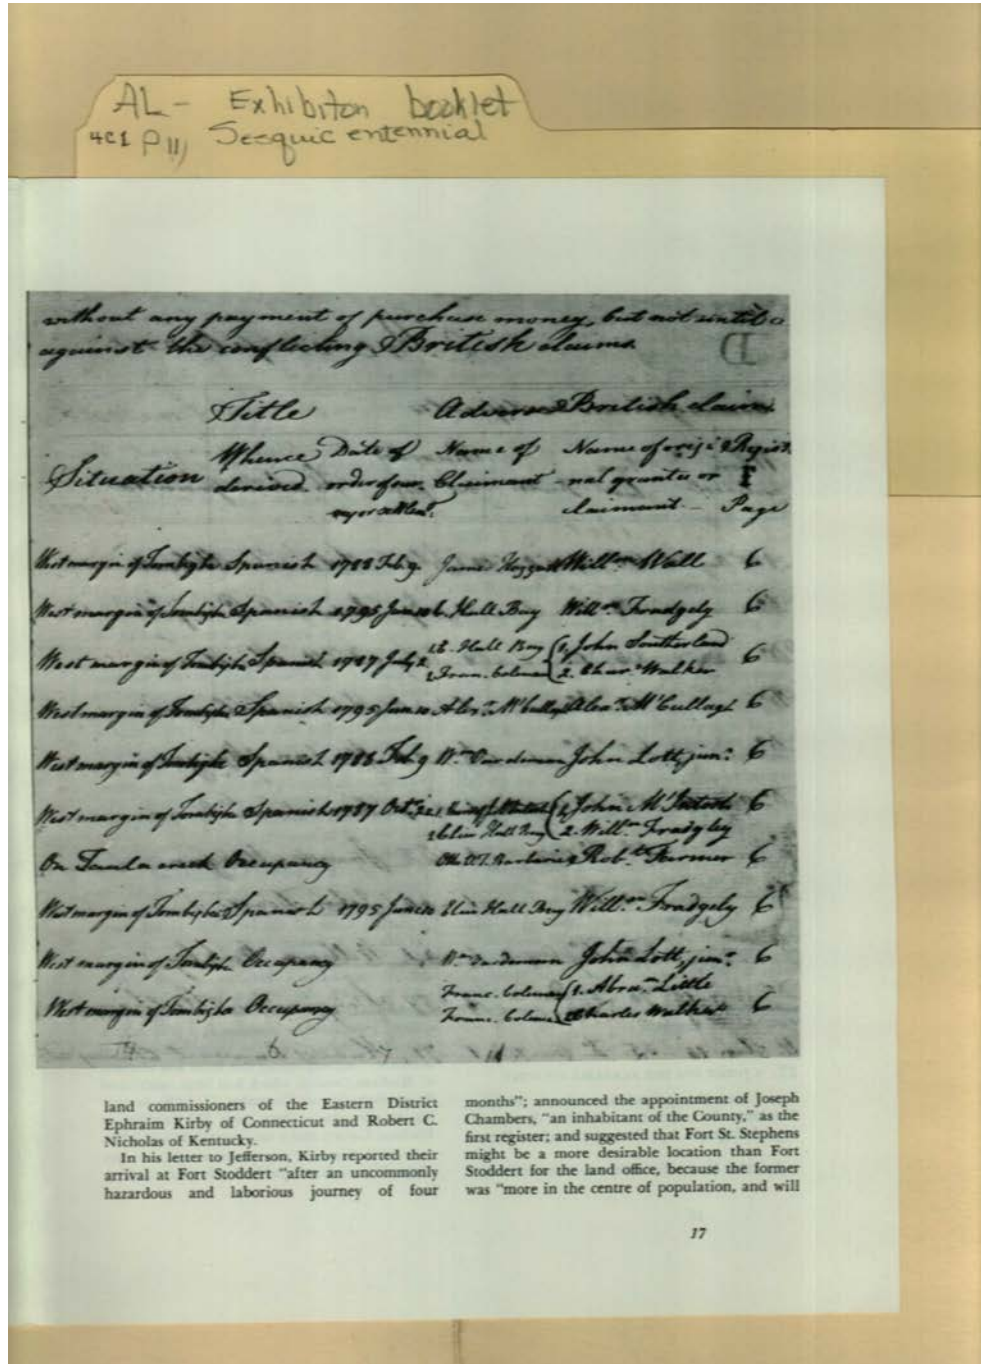 AL - Exhibiton booklet
4c1 p 11, Sesquicentennial
without any payment of purchase money, but not until a
against the conflicting British claims.
D
Title Adverse British claims
Situation Whence derived Date of order of sur- vey or settlem.t Name of Claimant Name of origi- nal grantee or claimant - Regist. Page
West margin of Tombigbe Spanish 1788 Feb 9 James Will.m Wall 6
West margin of Tombigbe Spanish 1795 June 10 Hall Bay Will.m Fradgely 6
West margin of Tombigbe Spanish 1787 July 2 1. Hall Bay 1. John Southerland 6
2 Fran. Coleman 2. Char.s Walker
West margin of Tombigbe Spanish 1795 June 10 Alex.r McCullagh Alex.r McCullagh 6
West margin of Tombigbe Spanish 1788 Feb 9 W.m Vardeman John Lott, jun.r 6
West margin of Tombigbe Spanish 1787 Oct.r 1. John McIntosh 6
2 Hall Bay 2. Will.m Fradgley
On creek Occupancy Rob.t Farmer 6
West margin of Tombigbe Spanish 1795 June 10 Hall Bay Will.m Fradgely 6
West margin of Tombigbe Occupancy W.m Vardeman John Lott, jun.r 6
Franc. Coleman 1. Abra.m Little
West margin of Tombigbe Occupancy Franc. Coleman 2 Charles Walker 6
land commissioners of the Eastern District
Ephraim Kirby of Connecticut and Robert C.
Nicholas of Kentucky.
In his letter to Jefferson, Kirby reported their
arrival at Fort Stoddert "after an uncommonly
hazardous and laborious journey of four
months"; announced the appointment of Joseph
Chambers, "an inhabitant of the County," as the
first register; and suggested that Fort St. Stephens
might be a more desirable location than Fort
Stoddert for the land office, because the former
was "more in the centre of population, and will
17